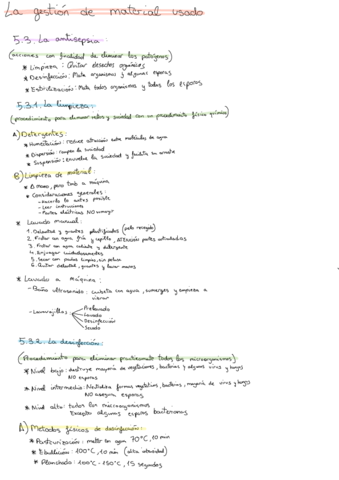 La gestión de material usado
5.3 La antisepsia:
(acciones con finalidad de eliminar los patógenos)
* Limpieza: Quitar desechos orgánicos
* Desinfección: Mata organismos y algunas esporas
* Esterilización: Mata todos organismos y todas las esporas
5.3.1. La limpieza:
(procedimiento para eliminar restos y suciedad con un procedimiento físico químico)
A) Detergentes:
* Humectación: reduce atracción entre moléculas de agua
* Dispersión: rompen la suciedad
* Suspensión: envuelve la suciedad y facilita su arrastre
B) Limpieza de material:
* A mano, pero tmb a máquina
* Consideraciones generales:
- Hacerlo lo antes posible
- Leer instrucciones
- Partes eléctricas NO
* Lavado manual:
1. Delantal y guantes plastificados
2. Frotar con agua fría y cepillo, ATENCIÓN partes articuladas
3. Frotar con agua caliente y detergente
4. Enjuagar cuidadosamente
5. Secar con paños limpios, sin pelusa
6. Quitar delantal, guantes y lavar manos
* Lavado a máquina:
- Baño ultrasonido: cubeta con agua, sumerges y empieza a
vibrar
- Lavavajillas:
Prelavado
Lavado
Desinfección
Secado
5.3.2. La desinfección:
(Procedimiento para eliminar prácticamente todos los microorganismos)
* Nivel bajo: destruye mayoría de vegetaciones, bacterias y algunos virus y hongos
NO esporas
* Nivel intermedio: formas vegetativas, bacterias, mayoría de virus y hongos
NO asegura esporas
* Nivel alto: todos los microorganismos
Excepto algunas esporas bacterianas
A) Métodos físicos de desinfección:
* Pasteurización: meter en agua 70°C, 10 min
* Ebullición: 100°C, 10 min (alta altitud)
* Planchado: 100°C - 150°C, 15 segundos